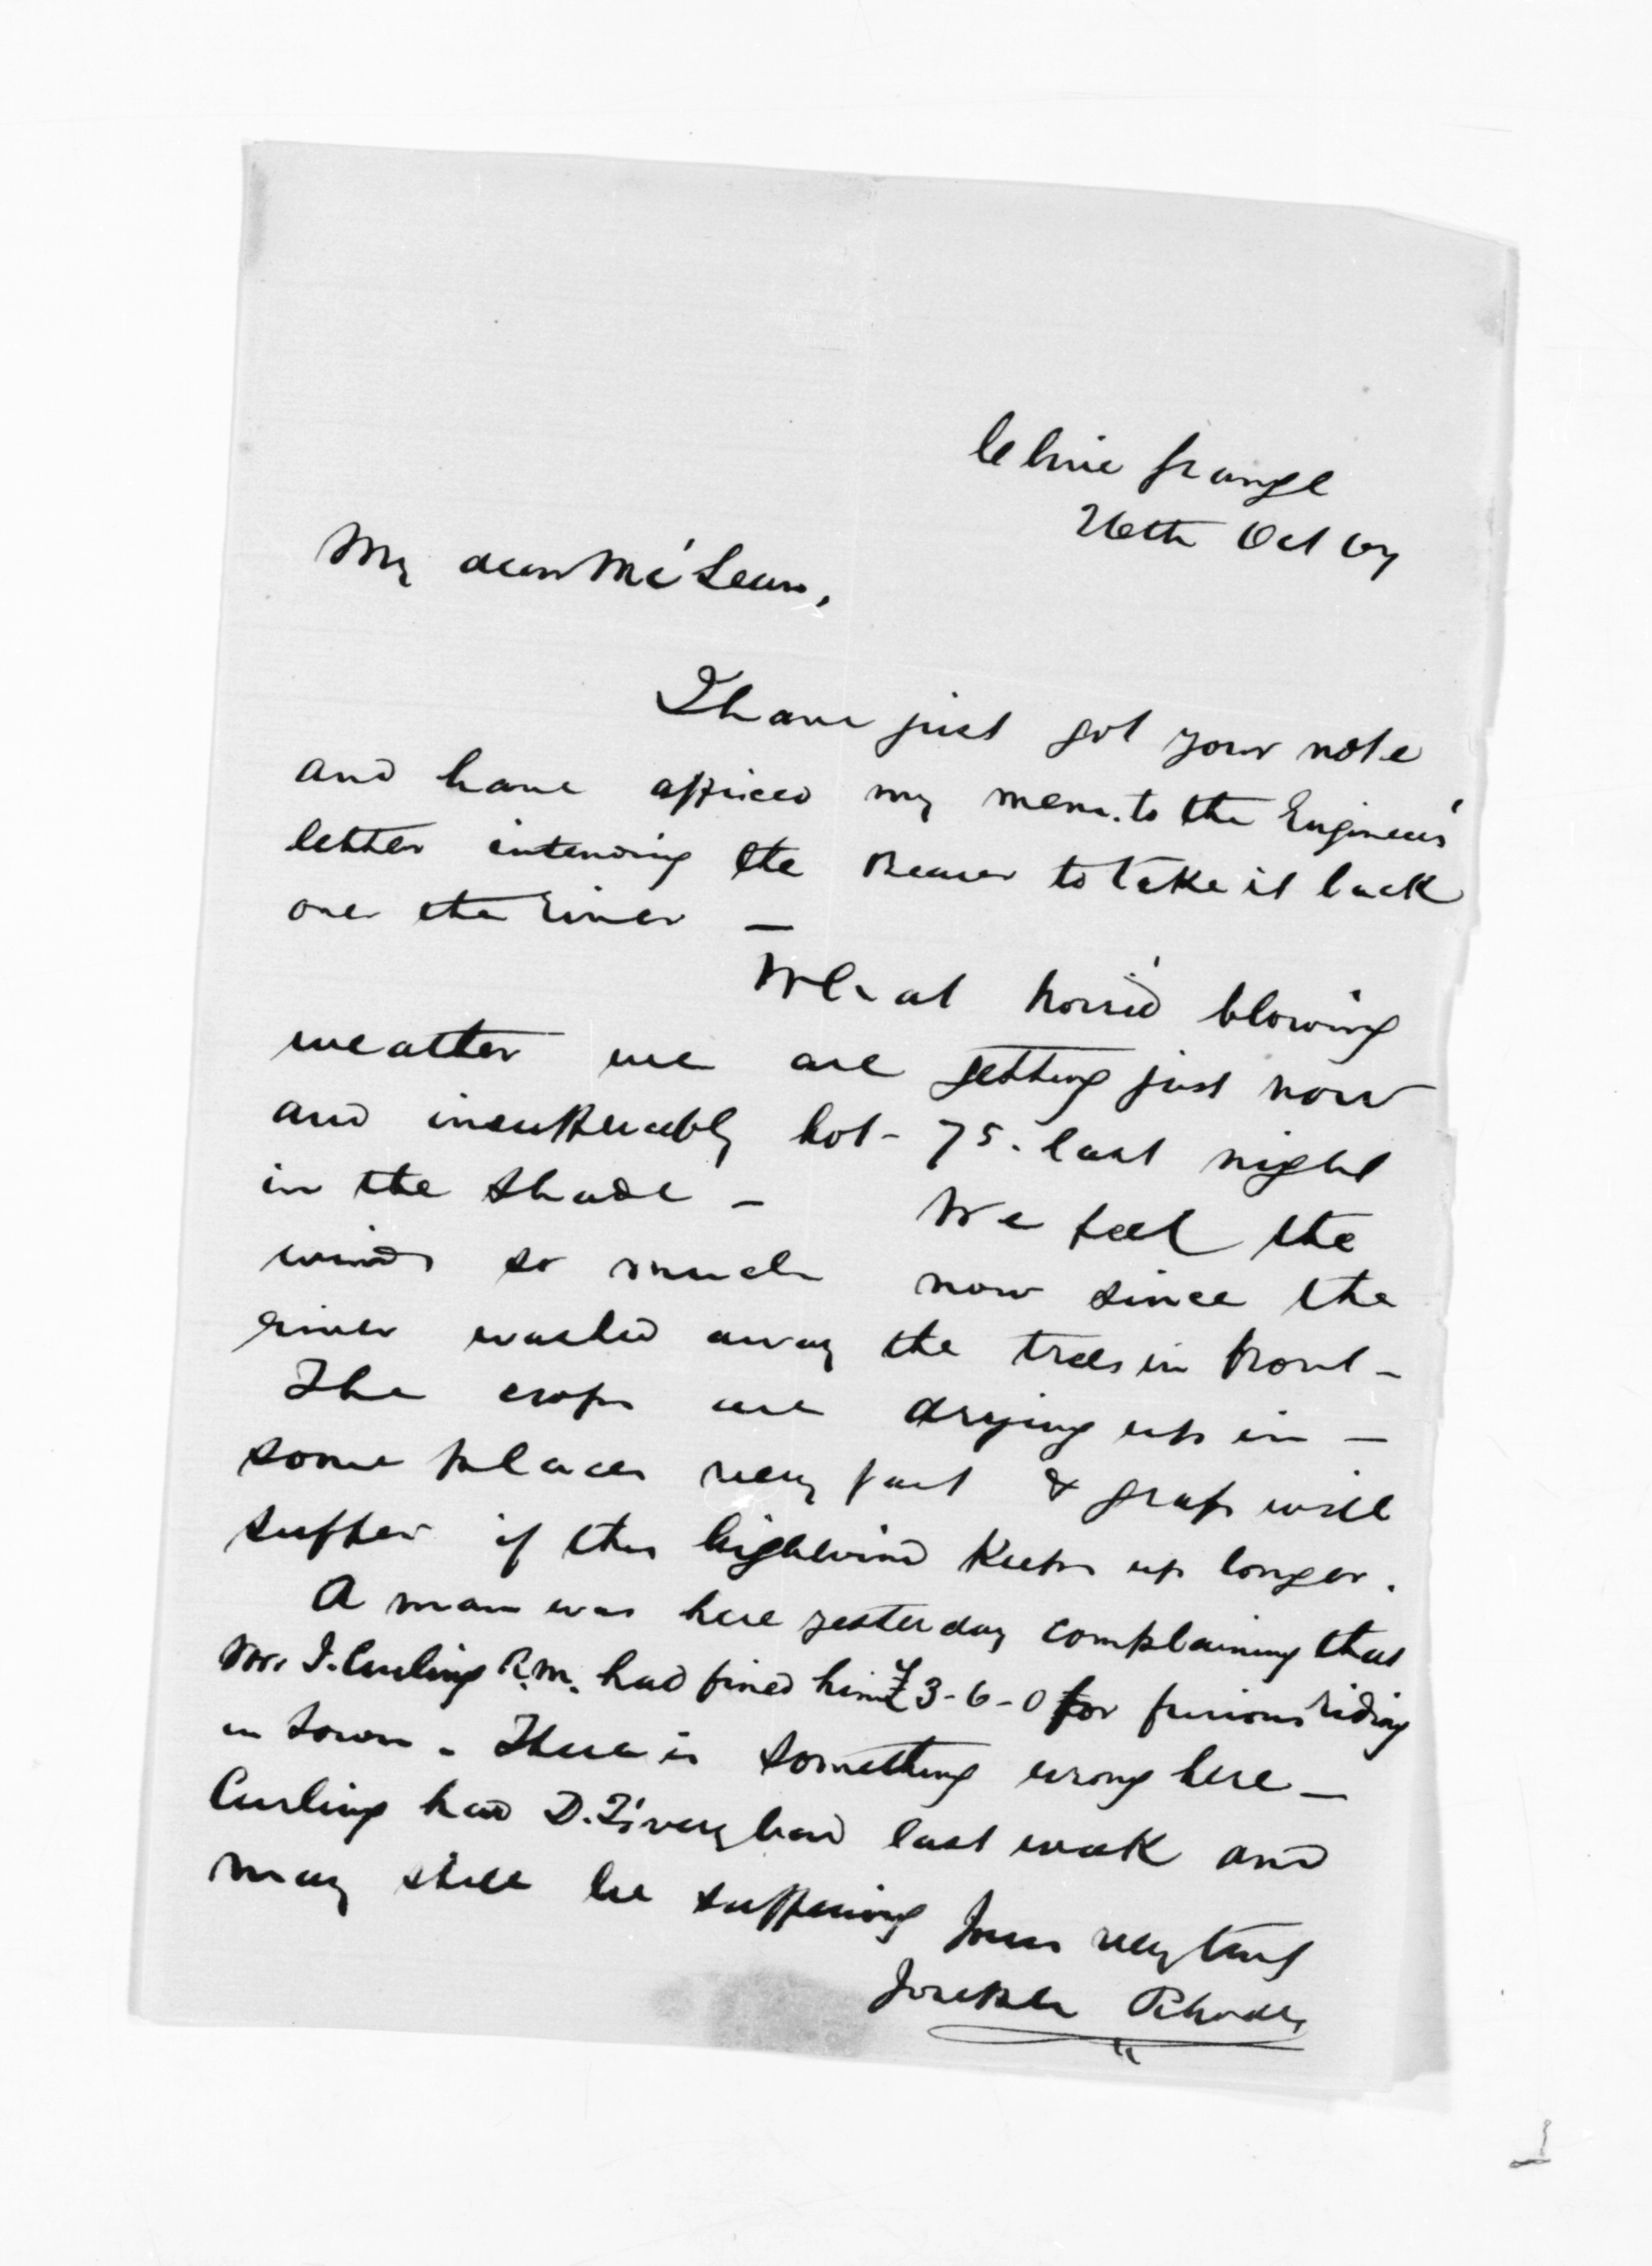 Clive Grange
26th Oct 67
My dear McLean,
I have just got your note
and have affixed my memo. to the Engineer's
letter intending the Bearer to take it back
over the River —
What horrid blowing
weather we are getting just now
and insufferably hot - 75. last night
in the shade - We feel the
winds so much now since the
river washed away the trees in front -
The crops are drying up in -
some places very fast & grass will
suffer if this high wind keeps up longer.
A man was here yesterday complaining that
Mr. J. Curling R.M. had fined him £3-6-0 for furious riding
in town - There is something wrong here -
Curling had D.T. very bad last week and
may still be suffering Yours very truly
Joseph Rhodes